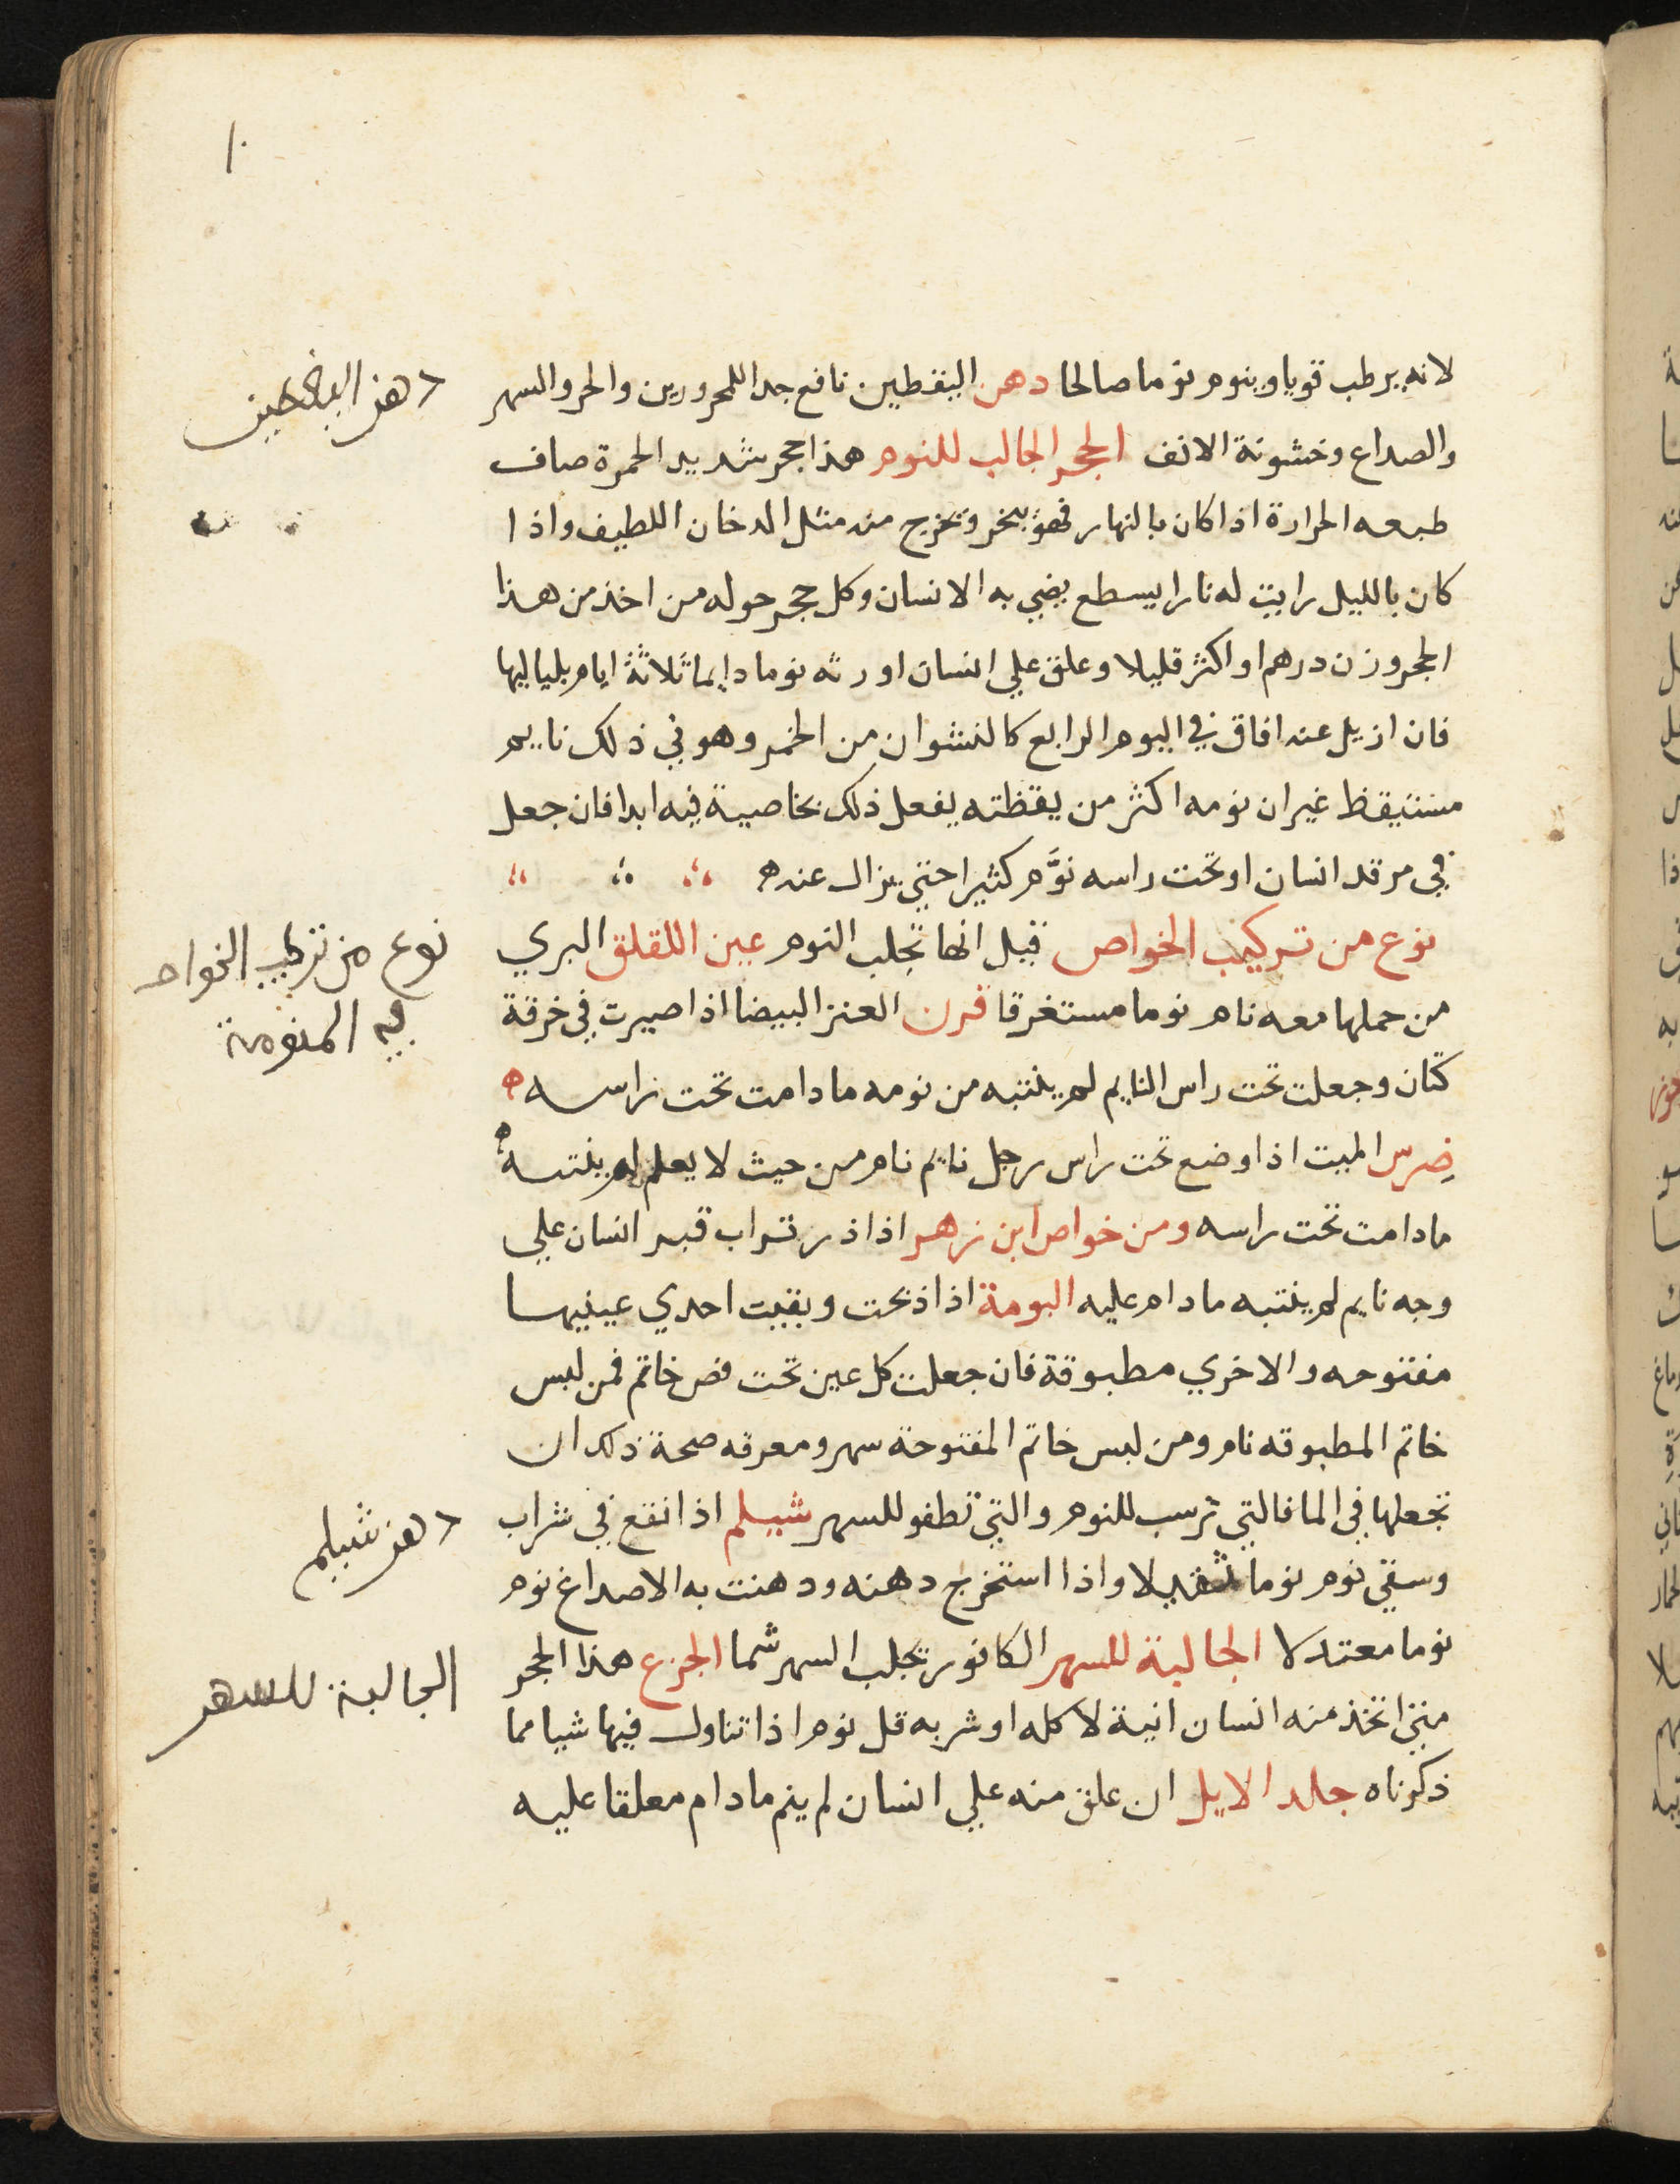 ١٠
لانه يرطب قويا وينوم نوما صالحا دهن اليقطين نافع جدا للمحرورين والحر والسهر
والصداع وخشونة الانف الحجر الجالب للنوم هذا حجر شديد الحمرة صاف
طبعه الحرارة اذا كان بالنهار فهو يبخر وتخرج منه مثل الدخان اللطيف واذا
كان بالليل رايت له نارا يسطع يضي به الانسان وكل حجر حوله من اخذ من هذا
الحجر وزن درهم او اكثر قليلا وعلق علي انسان اورثه نوما دايما ثلاثة ايام بلياليها
فان ازيل عنه افاق في اليوم الرابع كالنشوان من الخمر وهو في ذلك نايم
مستيقظ غير ان نومه اكثر من يقظته يفعل ذلك بخاصية فيه ابدا فان جعل
في مرقد انسان او تحت راسه نوَّم كثيرا حتي يزال عنه ه
نوع من تركيب الخواص قيل انها تجلب النوم عين اللقلق البري
من حملها معه نام نوما مستغرقا قرن العنز البيضا اذا صيرت في خرقة
كتان وجعلت تحت راس النايم لم ينتبه من نومه ما دامت تحت راسه ه
ضرس الميت اذا وضع تحت راس رجل نايم نام من حيث لا يعلم لم ينتبه
ما دامت تحت راسه ومن خواص ابن زهر اذا ذر تراب قبر انسان علي
وجه نايم لم ينتبه ما دام عليه البومة اذا ذبحت وبقيت احدي عينيها
مفتوحه والاخري مطبوقة فان جعلت كل عين تحت فص خاتم فمن لبس
خاتم المطبوقه نام ومن لبس خاتم المفتوحة سهر ومعرفه صحة ذلك ان
تجعلها في الما فالتي ترسب للنوم والتي تطفو للسهر شيلم اذا انقع في شراب
وسقي نوم نوما ثقيلا واذا استخرج دهنه ودهنت به الاصداغ نوم
نوما معتدلا الجالبة للسهر الكافور تجلب السهر شما الجزع هذا الحجر
متي اتخذ منه انسان انية لاكله او شربه قل نوم اذا تناول فيها شيا مما
ذكرناه جلد الايل ان علق منه علي انسان لم ينم ما دام معلقا عليه
دهن اليقطين
نوع من تركيب الخواص
في المنومة
دهن شيلم
الجالبة للسهر